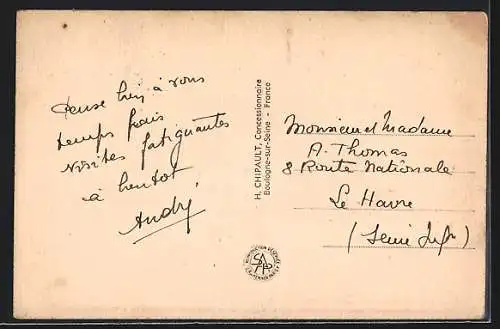 Pense bien à vous
temps frais
Visites fatiguantes
à bientot
André
H. CHIPAULT, Concessionnaire
Boulogne-sur-Seine - France
Monsieur et Madame
A. Thomas
8 Route Nationale
Le Havre
(Seine Infre)